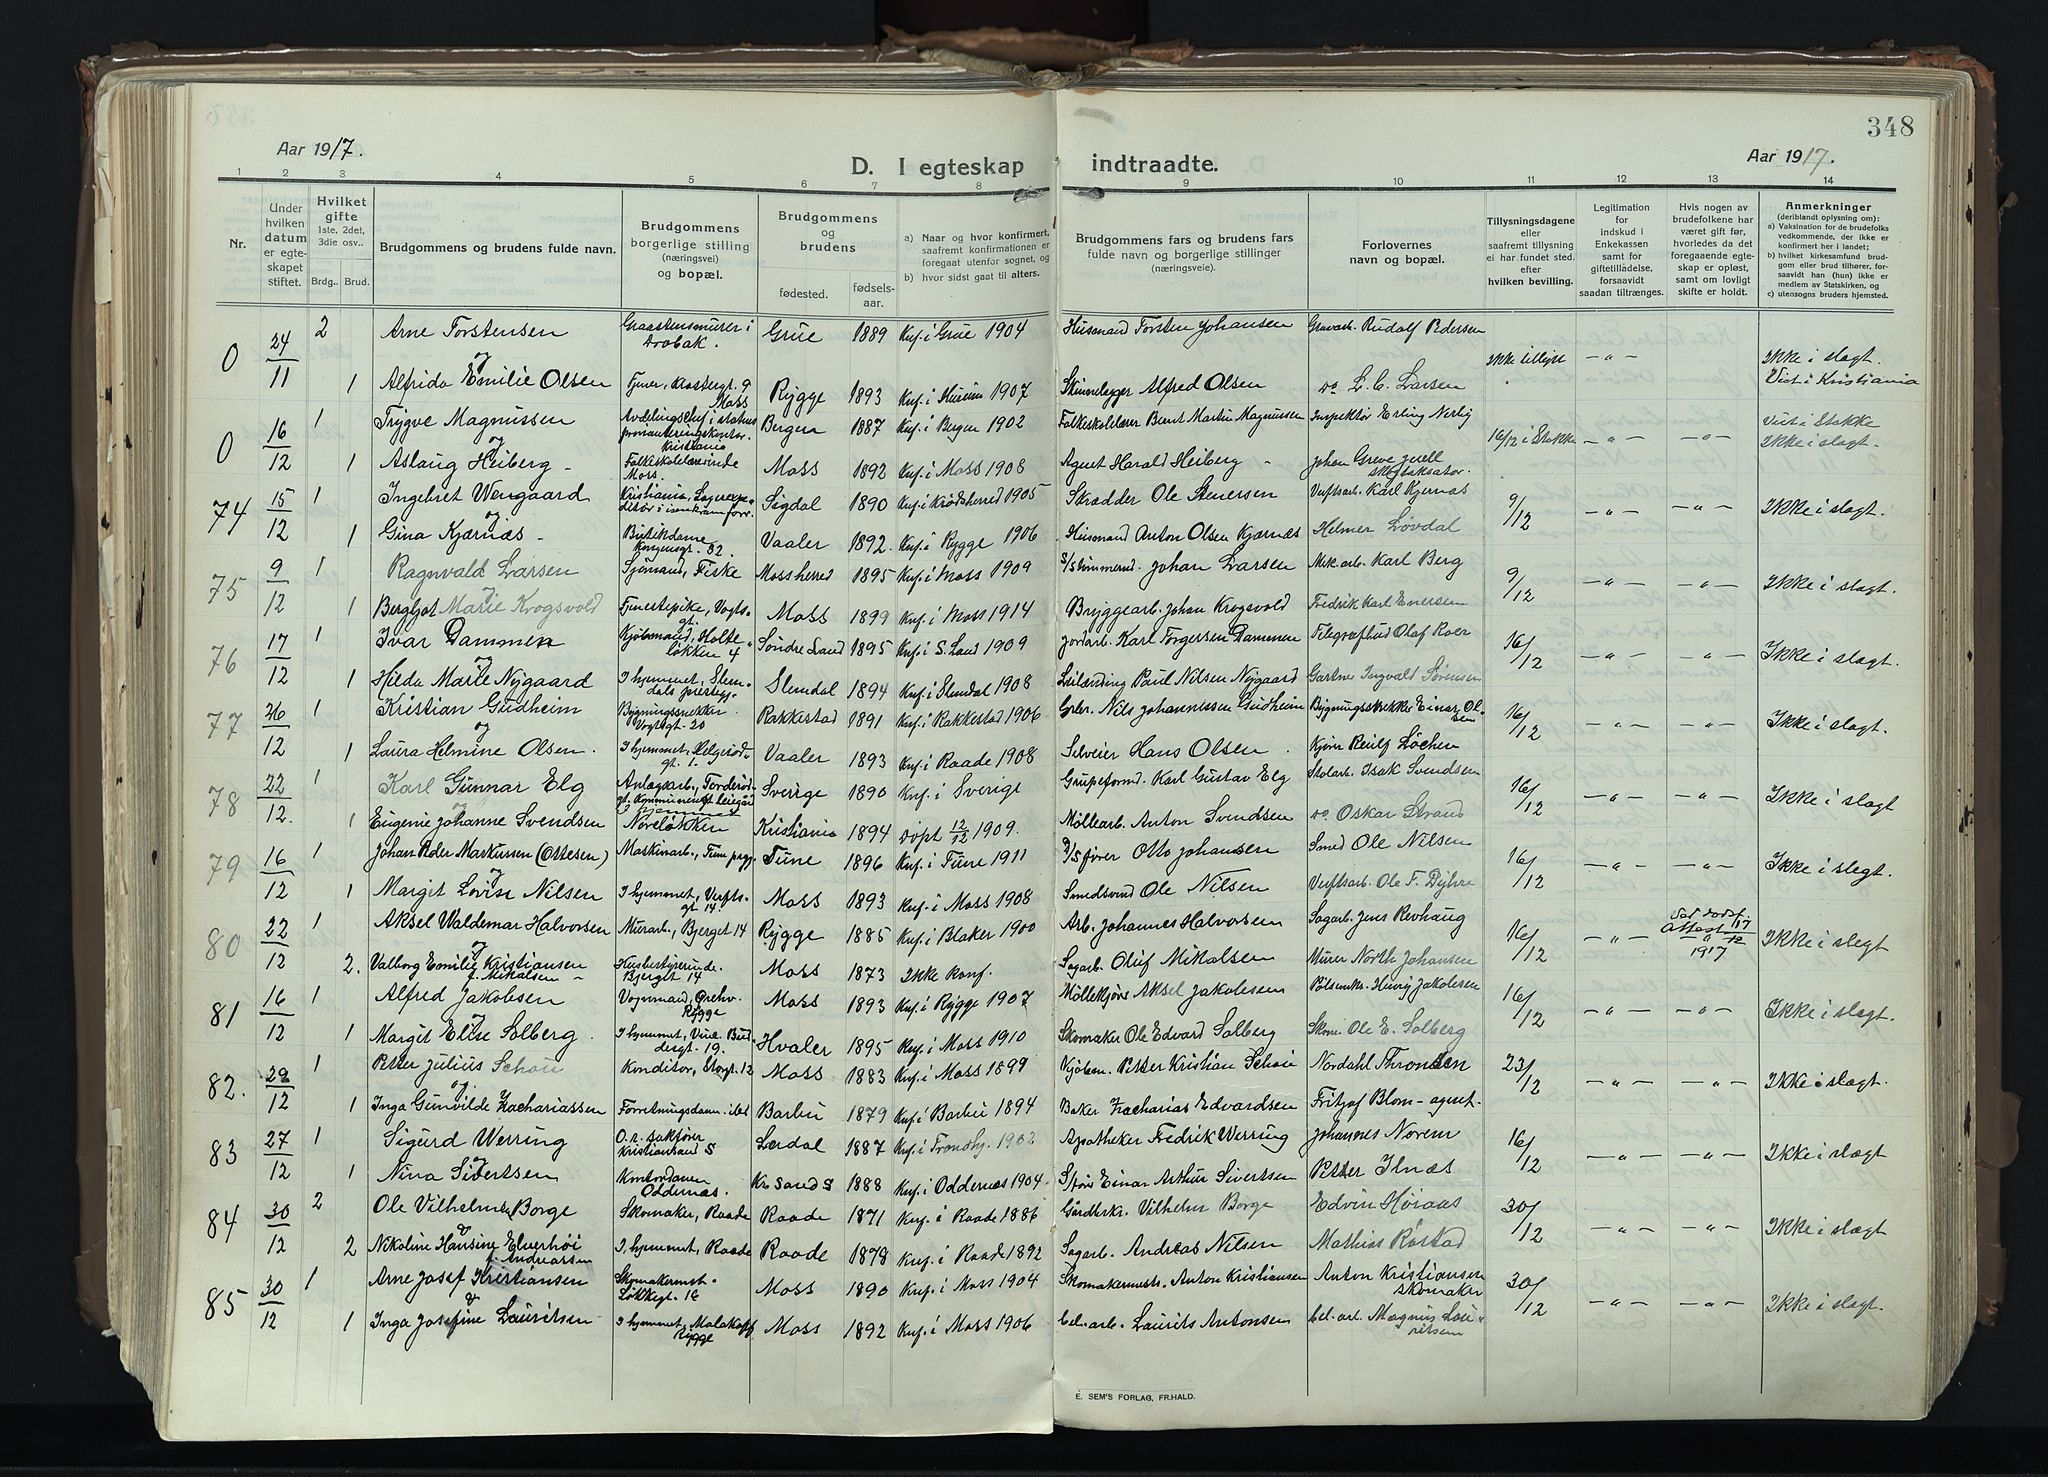 348
Aar 1917.
D. I egteskap indtraadte.
Aar 1917.
1 2 3 4 5 6 7 8 9 10 11 12 13 14
Nr.
Under hvilken datum er egteskapet stiftet.
Hvilket gifte 1ste, 2det, 3die osv..
Brdg.. Brud.
Brudgommens og brudens fulde navn.
Brudgommens borgerlige stilling (næringsvei) og bopæl.
Brudgommens og brudens
fødested. fødselsaar.
a) Naar og hvor konfirmert, saafremt konfirmationen er foregaat utenfor sognet, og
b) hvor sidst gaat til alters.
Brudgommens fars og brudens fars fulde navn og borgerlige stillinger (næringsveie).
Forlovernes navn og bopæl.
Tillysningsdagene eller saafremt tillysning ei har fundet sted. efter hvilken bevilling.
Legitimation for indskud i Enkekassen samt for giftetilladelse, forsaavidt saadan tiltrænges.
Hvis nogen av brudefolkene har været gift før, hvorledes da det foregaaende egteskap er opløst, samt om lovligt skifte er holdt.
Anmerkninger (deriblandt oplysning om): a) Vaksination for de brudefolks vedkommende, der ikke er konfirmert her i landet; b) hvilket kirkesamfund brudgom eller brud tilhører, forsaavidt han (hun) ikke er medlem av Statskirken, og c) utensogns bruders hjemsted.
0 24/11 2 Arne Torstensen Graastensmurer i Drøbak. Grue 1889 Knf. i Grue 1904 Husmand Torsten Johansen Gravarb. Rudolf Pedersen
og Ikke tillyst — " — Ikke i slegt. Viet i Kristiania
1 Alfrida Emilie Olsen Tjener, Klostergt. 9 Moss Rygge 1893 Knf. i Hurum 1907 Alfred Olsen do L. C. Larsen
0 16/12 1 Trygve Magnussen Avdelingschef i statens provianteringskontor. Kristiania Bergen 1887 Knf. i Bergen 1902 Folkeskolelærer Bernt Martin Magnussen Inspektør Erling Nerby
og 16/12 i Stokke — " — — " — Viet i Stokke Ikke i slegt.
1 Aslaug Heiberg - Folkeskolelærerinde Moss. Moss 1892 Knf. i Moss 1908 Agent Harald Heiberg - Johan Greve Juell skogtaksator.
74 15/12 1 Ingebret Wengaard Kristiania, Lagerexpeditør i isenkramforr. Sigdal 1890 Knf. i Krødsherred 1905 Skrædder Ole Stenersen Verftsarb. Karl Kjernæs
og 9/12 — " — — " — Ikke i slegt.
1 Gina Kjærnæs - Butikdame Kongensgt. 32. Vaaler 1892. Knf. i Rygge 1906 Husmand Anton Olsen Kjærnæs Helmer Løvdal
75 9/12 1 Ragnvald Larsen Sjømand, Fiske Mossherred 1895 Knf. i Moss 1909 Johan Larsen Mek. arb. Karl Berg
og 9/12 — " — — " — Ikke i slegt.
1 Bergljot Marie Krogsvold Tjenestepike, Vogtsgt. Moss 1899 Knf. i Moss 1914 Bryggearb. Johan Krogsvold Fredrik Karl Enersen
76 17/12 1 Ivar Dammen Kjøbmand, Holteløkken 4 Søndre Land 1895 Knf. i S. Land 1909 Jordarb. Karl Torgersen Dammen Telegrafbud Olaf Roer
og 16/12 — " — — " — Ikke i slegt.
1 Hilda Marie Nygaard I hjemmet, Slemdals prestegj. Slemdal 1894 Knf. i Slemdal 1908 Leilænding Paul Nilsen Nygaard Gartner Ingvald Sørensen
77 26/12 1 Kristian Gudheim Bygningssnekker Vogtsgt. 20 Rakkestad 1891 Knf. i Rakkestad 1906 Grbr. Nils Johannessen Gudheim Bygningssnekker Einar Olsen
og 16/12 — " — — " — Ikke i slegt.
1 Laura Helmine Olsen. I hjemmet, Helgerødgt. 1. Vaaler 1893 Knf. i Raade 1908 Selveier Hans Olsen. Kjører Reidf Løchen
78 22/12. 1 Karl Gunnar Elg Anlægsarb., Sverige 1890 Knf. i Sverige Grubeformd. Karl Gustav Elg Stolarb. Isak Svendsen
og 16/12 — " — — " — Ikke i slegt
1 Eugenie Johanne Svendsen Noreløkken Kristiania 1894 Døpt 12/12 1909. Møllearb. Anton Svendsen do Oskar Strand
79 16/12 1 Johan Peder Markussen (Ottesen) Maskinarb., Tune prgj. Tune 1896 Knf. i Tune 1911 Otto Johansen Smed Ole Nilsen
og 16/12 — " — — " — Ikke i slegt.
1 Margit Lovise Nilsen I hjemmet, Verftsgt. 14. Moss 1893 Knf. i Moss 1908 Smedsvend Ole Nilsen Verftsarb. Ole F. Dyhre
80 22/12 1 Aksel Waldemar Halvorsen Murarb., Bjerget 14 Rygge 1885 Knf. i Blaker 1900 Arb. Johannes Halvorsen Sagarb. Jens Revhaug
og 16/12 — " — 1917 Ikke i slegt
2. Valborg Emilie Kristiansen f. Mikalsen - Husbestyrerinde. Bjerget 14 Moss 1873 Ikke konf. Sagarb. Oluf Mikalsen Murer North Johansen
81 16/12 1 Alfred Jakobsen Vognmand, Rygge Moss 1893 Knf. i Rygge 1907 Møllekjører Aksel Jakobsen Pølsemk. Henry Jakobsen
og 16/12 — " — — " — Ikke i slegt.
1 Margit Elise Solberg. I hjemmet, 19. Hvaler 1895 Knf. i Moss 1910 Skomaker Ole Edvard Solberg Skom. Ole E. Solberg
82. 29/12 1 Petter Julius Schou Konditor, Storgt. 12 Moss 1883 Knf. i Moss 1899 Kjøbm. Petter Kristian Schou Nordahl Thronsen
og. 23/12 — " — — " — Ikke i slegt.
1 Inga Gunvilde Zachariassen Forretningsdame ibd. Barbu 1879 Knf. i Barbu 1894 Baker Zacharias Edvardsen Fritjof Blom - agent.
83 27/12 1 Sigurd Werring O. r. sakfører Kristiansand S Lærdal 1887 Knf. i Trondhj. 1902 Apotheker Fredrik Werring Johannes Norem
og 16/12 — " — — " — Ikke i slegt
1 Nina Sivertsen Kontordame Oddernæs. Kr. Sand S 1888 Knf. i Oddernæs 1904 Einar Arthur Sivertsen Petter Ilnæs
84 30/12 2 Ole Vilhelmsen Borge Skomaker, Raade Raade 1871 Knf. i Raade 1886 Gårdbrk. Vilhelm Borge Edvin Høiaas
og 30/12 — " — — " — Ikke i slegt
2 Nikoline Hansine Elverhøi f. Andreassen I hjemmet, Raade Raade 1878 Knf. i Raade 1892 Sagarb. Andreas Nilsen Mathias Røstad
85 30/12 1 Arne Josef Kristiansen Skomakermst. Løkkegt. 16 Moss 1890 Knf. i Moss 1904 Skomakermester. Anton Kristiansen Anton Kristiansen skomaker
og 30/12 — " — — " — Ikke i slegt.
1 Inga Josefine Lauritsen - I hjemmet, Malakoff Rygge Moss 1892 Knf. i Moss 1906 Cel. arb. Laurits Antonsen Cel. arb. Magnus Lauritsen
E. SEM'S FORLAG, FR.HALD.